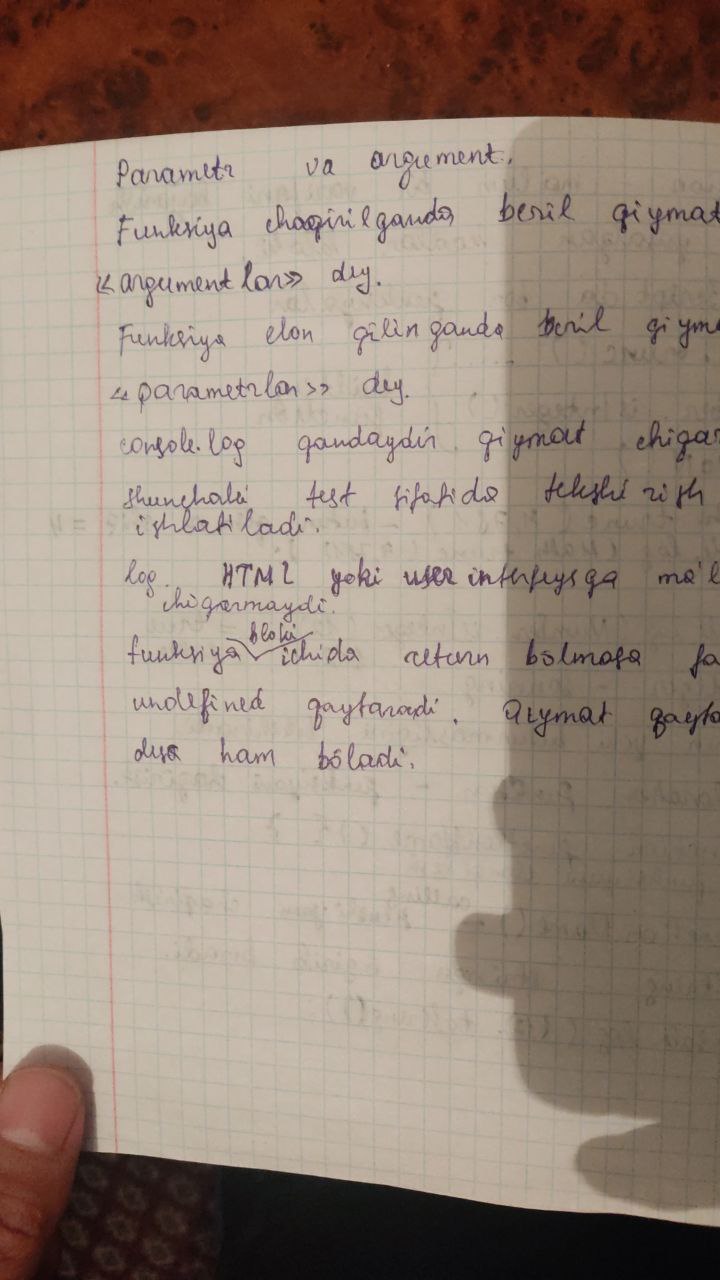 Parametr va argument.
Funksiya chaqirilganda beril qiymat
«argumentlar» dey.
Funksiya elon qilinganda beril qiym
«parametrlar» dey.
console.log qandaydir qiymat chiqar
shunchaki test sifatida tekshirish
ishlatiladi.
log. HTML yoki user interfeysga ma'l
chiqarmaydi.
bloki
funksiya ichida return bõlmasa
undefined qaytaradi. Qiymat qayta
desa ham bõladi.